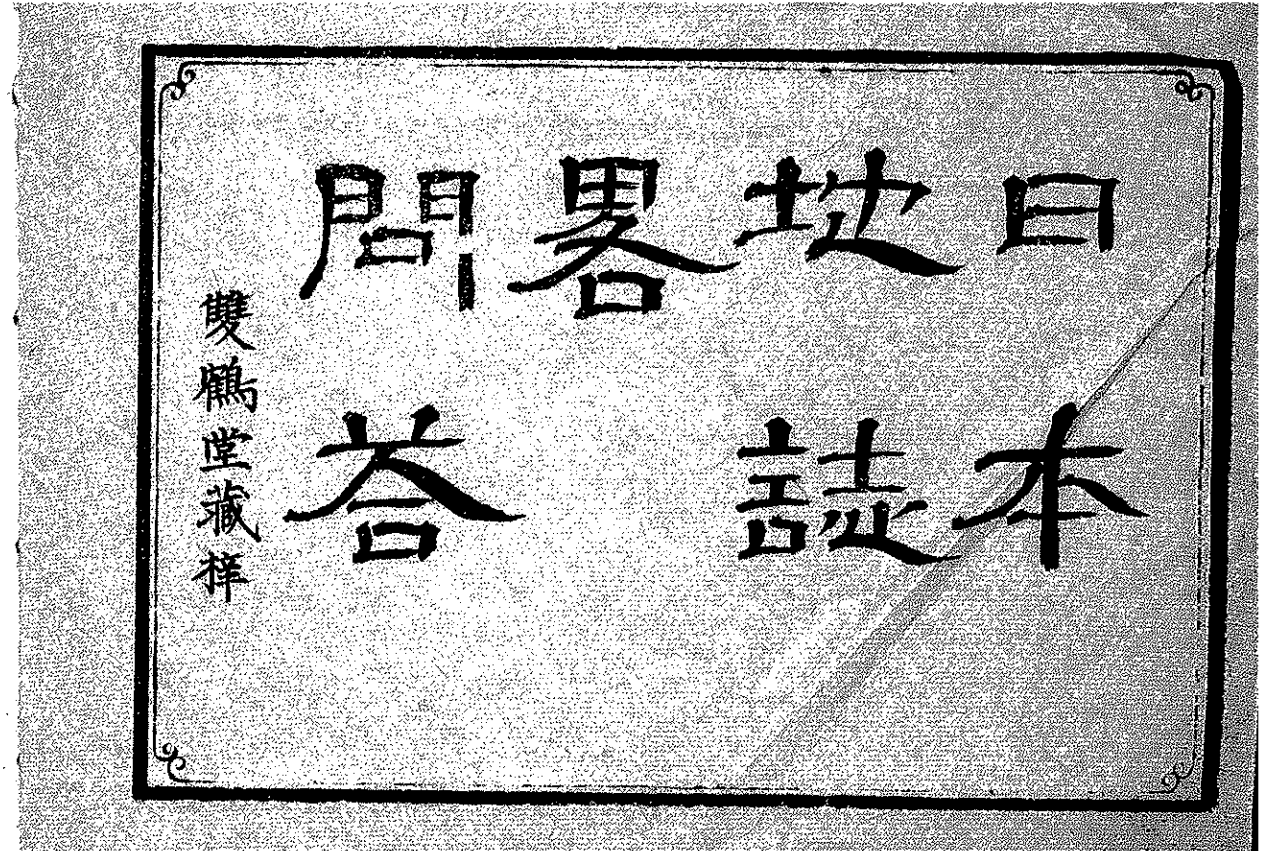 日本
地誌
畧
問荅
雙鶴堂藏梓